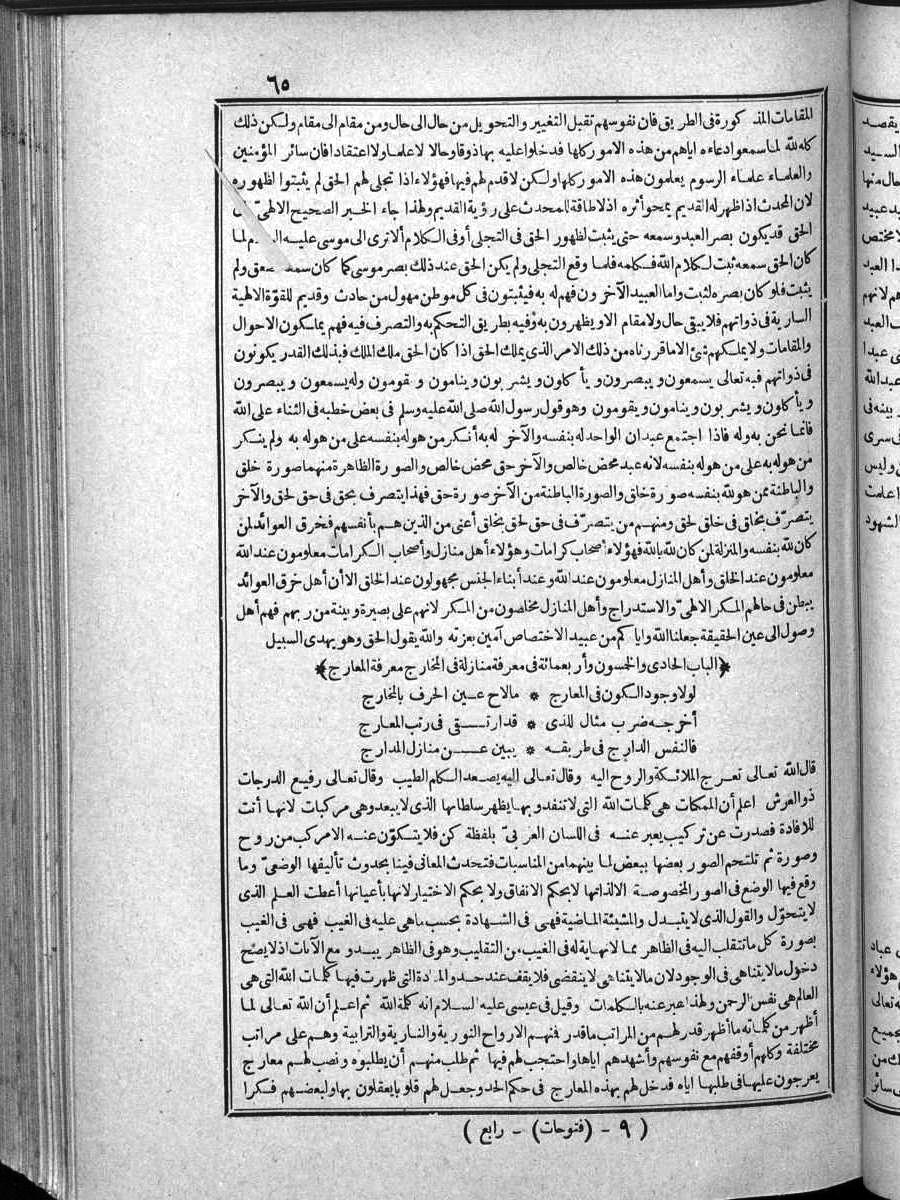 ٦٥
المقامات المذكورة فى الطريق فان نفوسهم تقبل التغيير والتحويل من حال الى حال ومن مقام الى مقام ولكن ذلك
كله لله لما سمعوا دعاءه اياهم من هذه الامور كلها فدخلوا عليه بها ذوقا وحالا لا علما ولا اعتقادا فان سائر المؤمنين
والعلماء علماء الرسوم يعلمون هذه الامور كلها ولكن لا قدم لهم فيها فهؤلاء اذا تجلى لهم الحق لم يثبتوا لظهوره
لان المحدث اذا ظهر له القديم يمحو أثره اذ لا طاقة للمحدث على رؤية القديم ولهذا جاء الخبر الصحيح الالهىّ
الحق قد يكون بصر العبد وسمعه حتى يثبت لظهور الحق فى التجلى أو فى الكلام ألا ترى الى موسى عليه لما
كان الحق سمعه ثبت لكلام الله فكلمه فلما وقع التجلى ولم يكن الحق عند ذلك بصر موسى كما كان سمعه صعق ولم
يثبت فلو كان بصره لثبت واما العبيد الآخرون فهم له به فيثبتون فى كل موطن مهول من حادث وقديم للقوّة الالهية
السارية فى ذواتهم فلا يبقى حال ولا مقام الا ويظهرون به وفيه بطريق التحكم به والتصرف فيه فهم يملكون الاحوال
والمقامات ولا يملكهم شئ الا ما قررناه من ذلك الامر الذى يملك الحق اذا كان الحق ملك الملك فبذلك القدر يكونون
فى ذواتهم فبه تعالى يسمعون ويبصرون ويأكلون ويشربون وينامون ويقومون وله يسمعون ويبصرون
ويأكلون ويشربون وينامون ويقومون وهو قول رسول الله صلى الله عليه وسلم فى بعض خطبه فى الثناء على الله
فانما نحن به وله فاذا اجتمع عبدان الواحد له بنفسه والآخر له به أنكر من هو له بنفسه على من هو له به ولم ينكر
من هو له به على من هو له بنفسه لانه عبد محض خالص والآخر حق محض خالص والصورة الظاهرة منهما صورة خلق
والباطنة ممن هو لله بنفسه صورة خلق والصورة الباطنة من الآخر صورة حق فهذا يتصرف بحق فى حق لحق والآخر
يتصرّف بخلق فى خلق لحق ومنهم من يتصرّف فى حق لحق بخلق أعنى من الذين هم بأنفسهم فخرق العوائد لمن
كان لله بنفسه والمنزلة لمن كان لله بالله فهؤلاء أصحاب كرامات وهؤلاء أهل منازل وأصحاب الكرامات معلومون عند الله
معلومون عند الخلق وأهل المنازل معلومون عند الله وعند أبناء الجنس مجهولون عند الخلق الا أن أهل خرق العوائد
يبطن فى حالهم المكر الالهىّ والاستدراج وأهل المنازل مخلصون من المكر لانهم على بصيرة وبينة من ربهم فهم أهل
وصول الى عين الحقيقة جعلنا الله واياكم من عبيد الاختصاص آمين بعزته والله يقول الحق وهو يهدى السبيل
﴿الباب الحادى والخمسون وأربعمائة فى معرفة منازلة فى المخارج معرفة المعارج﴾
لولا وجود الكون فى المعارج * ما لاح عين الحرف بالمخارج
أخرجه ضرب مثال للذى * قد ارتقى فى رتب المعارج
فالنفس الدارج فى طريقه * يبين عن منازل المدارج
قال الله تعالى تعرج الملائكة والروح اليه وقال تعالى اليه يصعد الكلم الطيب وقال تعالى رفيع الدرجات
ذو العرش اعلم أن الممكنات هى كلمات الله التى لا تنفد وبها يظهر سلطانها الذى لا يبعد وهى مركبات لانها أتت
للافادة فصدرت عن تركيب يعبر عنه فى اللسان العربىّ بلفظة كن فلا يتكوّن عنه الا مركب من روح
وصورة ثم تلتحم الصور بعضها ببعض لما بينهما من المناسبات فتحدث المعانى فينا بحدوث تأليفها الوضعىّ وما
وقع فيها الوضع فى الصور المخصوصة الا لذاتها لا بحكم الاتفاق ولا بحكم الاختيار لانها بأعيانها أعطت العلم الذى
لا يتحوّل والقول الذى لا يتبدل والمشيئة الماضية فهى فى الشهادة بحسب ما هى عليه فى الغيب فهى فى الغيب
بصورة كل ما تتقلب اليه فى الظاهر مما لا نهاية له فى الغيب من التقليب وهو فى الظاهر يبدو مع الآنات اذ لا يصح
دخول ما لا يتناهى فى الوجود لان ما لا يتناهى لا ينقضى فلا يقف عند حد والمادة التى ظهرت فيها كلمات الله التى هى
العالم هى نفس الرحمن ولهذا عبر عنه بالكلمات وقيل فى عيسى عليه السلام انه كلمة الله ثم اعلم أن الله تعالى لما
أظهر من كلماته ما أظهر قدر لهم من المراتب ما قدر فمنهم الارواح النورية والنارية والترابية وهم على مراتب
مختلفة وكلهم أوقفهم مع نفوسهم وأشهدهم اياها واحتجب لهم فيها ثم طلب منهم أن يطلبوه ونصب لهم معارج
يعرجون عليها فى طلبها اياه فدخل لهم بهذه المعارج فى حكم الحد وجعل لهم قلوبا يعقلون بها ولبعضهم فكرا
( ٩ - (فتوحات) - رابع )